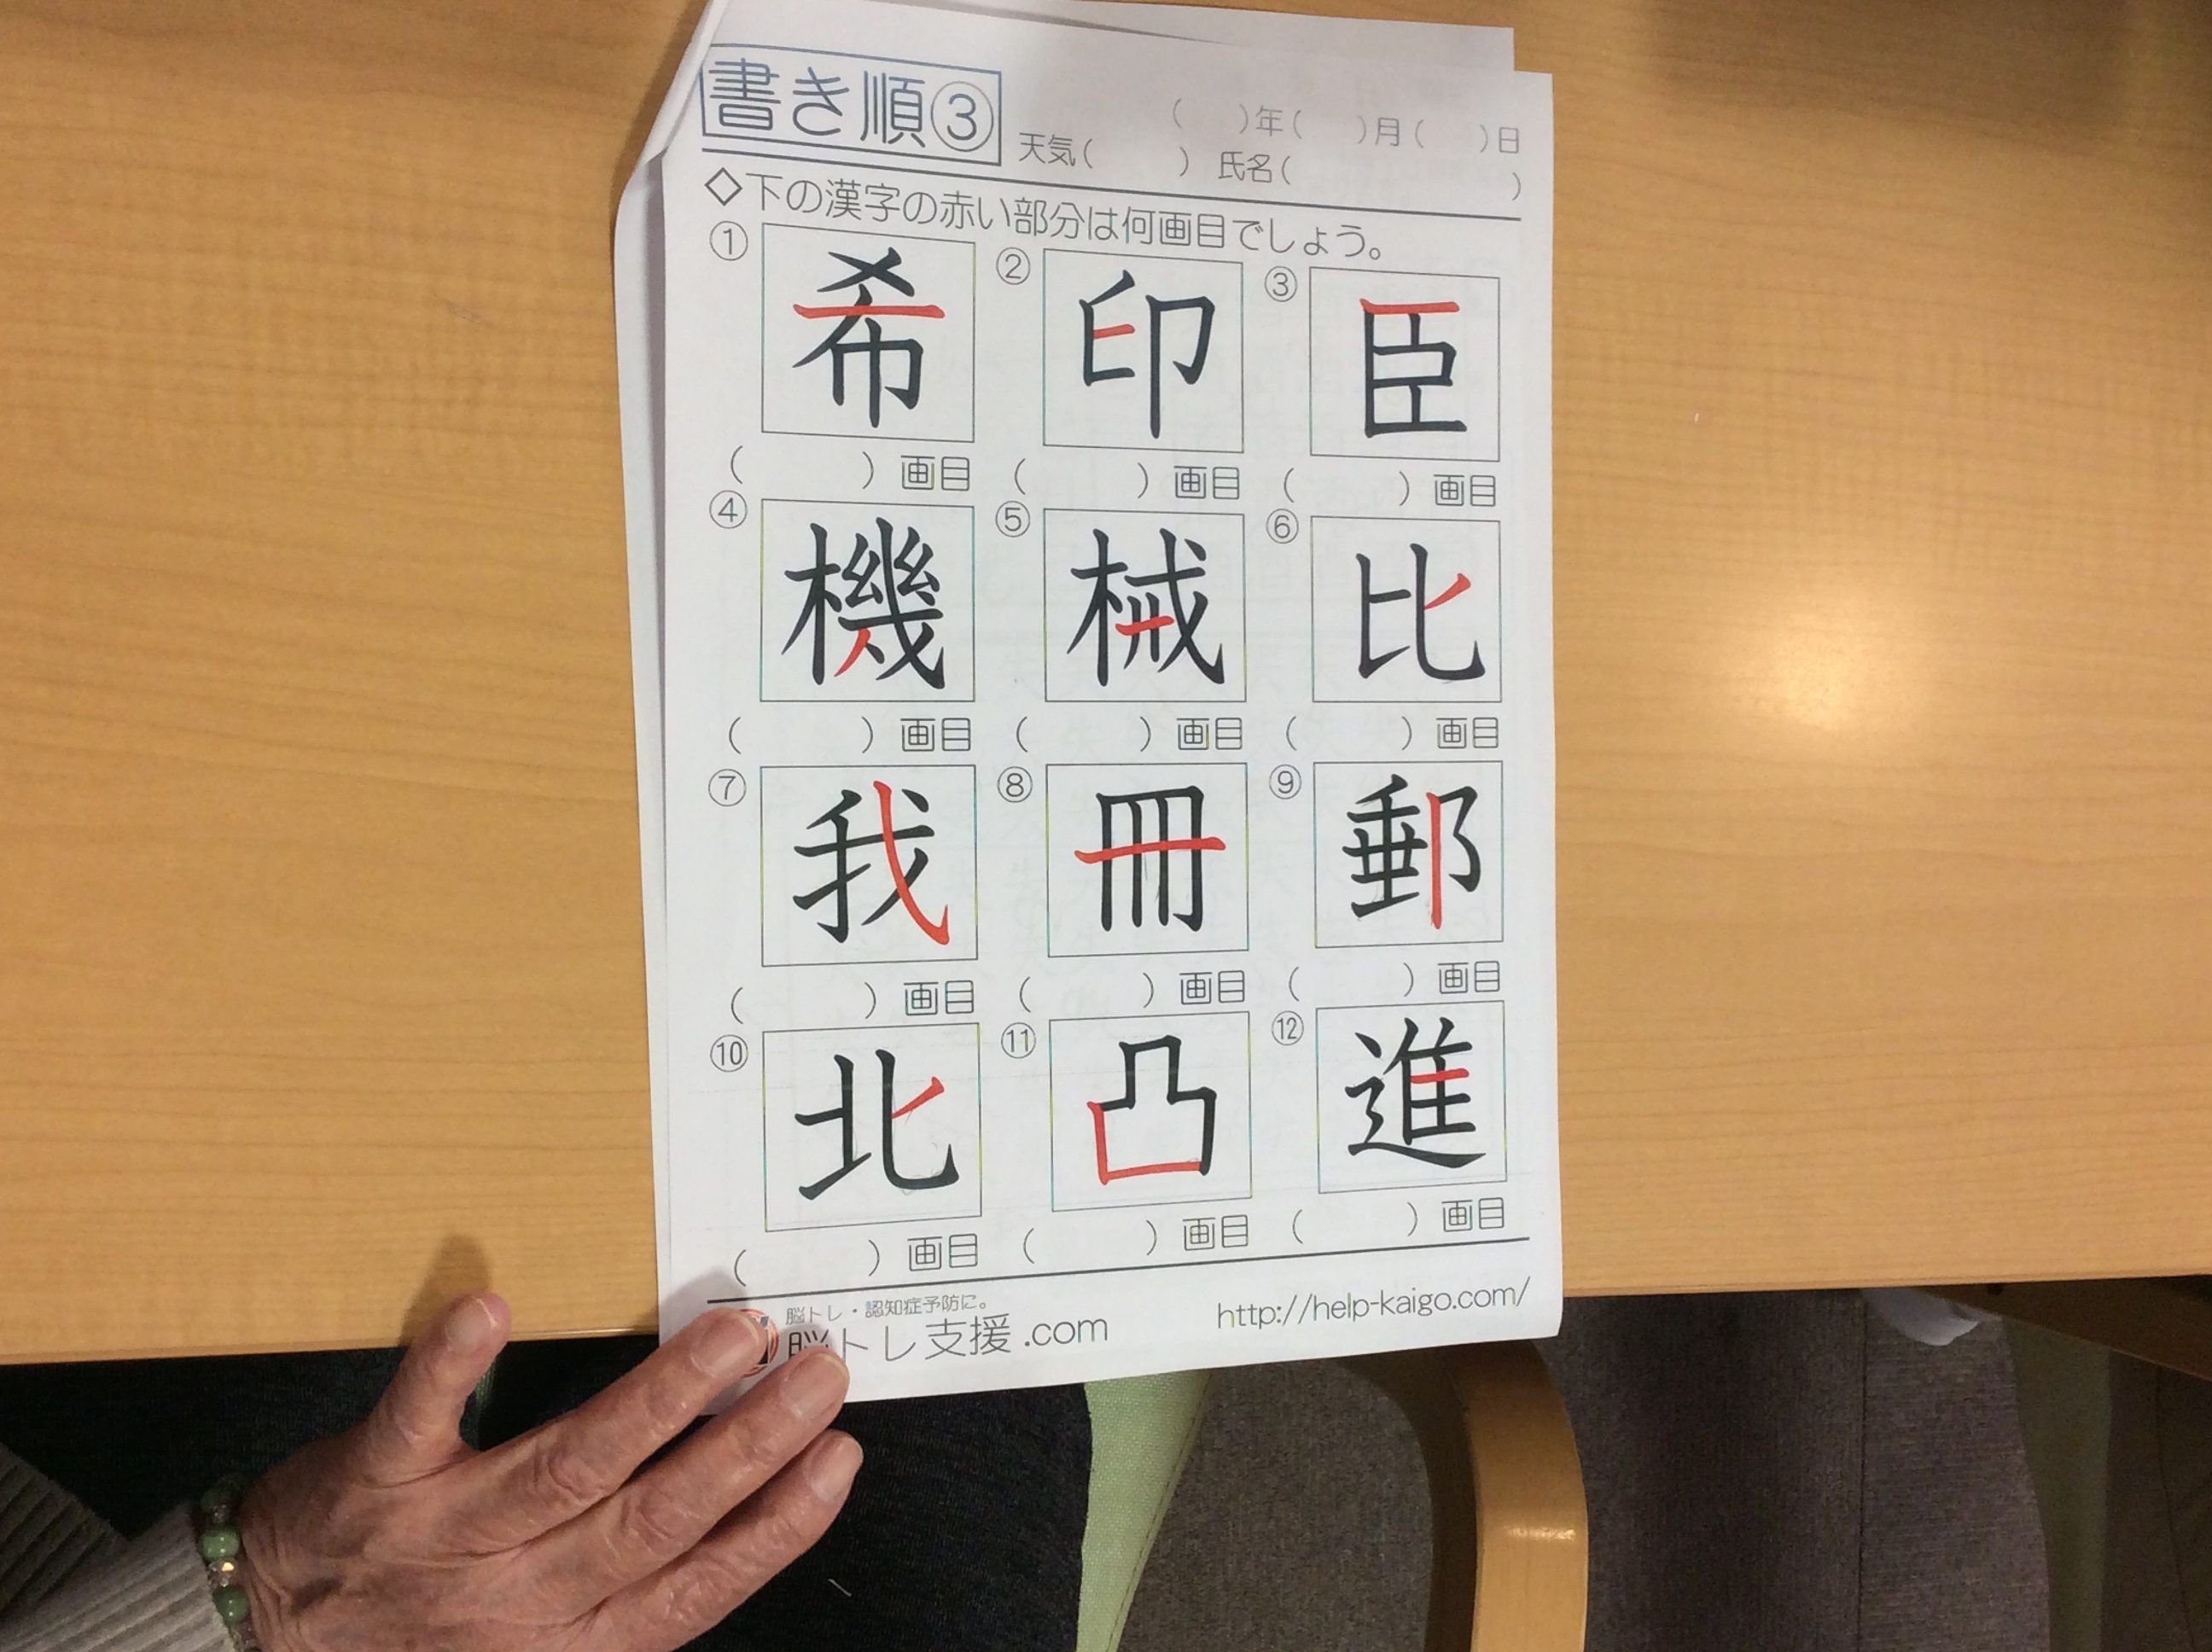 書き順③
( )年( )月( )日
天気( ) 氏名( )
◇下の漢字の赤い部分は何画目でしょう。
① 希 ② 印 ③ 臣
( )画目 ( )画目 ( )画目
④ 機 ⑤ 械 ⑥ 比
( )画目 ( )画目 ( )画目
⑦ 我 ⑧ 冊 ⑨ 郵
( )画目 ( )画目 ( )画目
⑩ 北 ⑪ 凸 ⑫ 進
( )画目 ( )画目 ( )画目
脳トレ・認知症予防に。
脳トレ支援.com
http://help-kaigo.com/